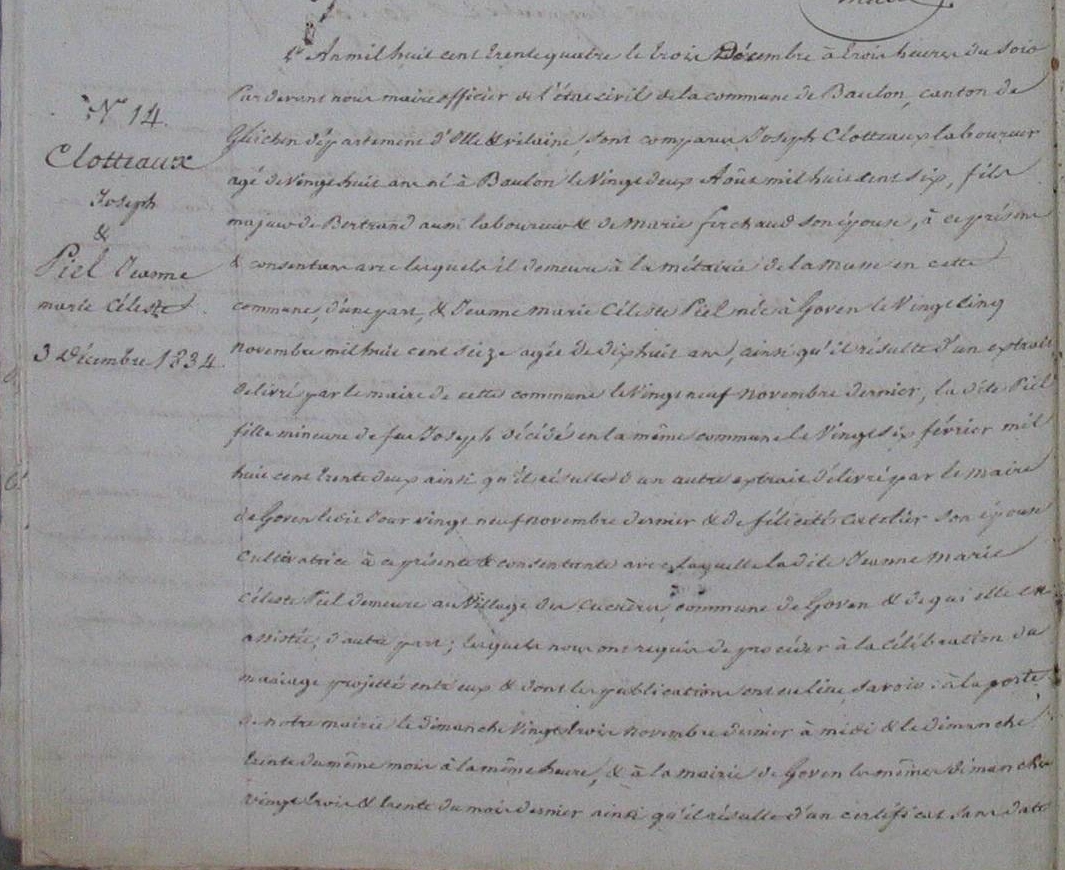 N° 14.
Clotteaux
Joseph
&
Piel Jeanne
marie Céleste
3 Décembre 1834.
L'An mil huit cent trente quatre le trois Décembre à trois heures du soir
Par devant nous maire officier de l'état civil de la commune de Baulon, canton de
Guichen département d'Ille & vilaine, sont comparus Joseph Clotteaux laboureur
agé de vingt huit ans né à Baulon le vingt deux Août mil huit cent six, fils
majeur de Bertrand aussi laboureur & de Marie ferchaud son épouse, à ce présens
& consentans avec lesquels il demeure à la métairie de la musse en cette
commune, d'une part, & Jeanne Marie Céleste Piel née à Goven le vingt cinq
novembre mil huit cent seize agée de dix huit ans, ainsi qu'il résulte d'un extrait
délivré par le maire de cette commune le vingt neuf novembre dernier, la dite Piel
fille mineure de feu Joseph décédé en la même commune le vingt six février mil
huit cent trente deux ainsi qu'il résulte d'un autre extrait délivré par le maire
de Goven le dit Jour vingt neuf novembre dernier & de félicité catelier son épouse
cultivatrice à ce présente & consentante avec laquelle la dite Jeanne marie
céleste Piel demeure au village des commune de Goven & de qui elle est
assistée; d'autre part; lesquels nous ont requis de procéder à la célébration du
mariage projetté entr'eux & dont les publications ont eu lieu savoir: à la porte
de notre mairie le dimanche vingt trois novembre dernier à midi & le dimanche
trente du même mois à la même heure, & à la mairie de Goven les mêmes dimanches
vingt trois & trente du mois dernier ainsi qu'il résulte d'un certificat sans date